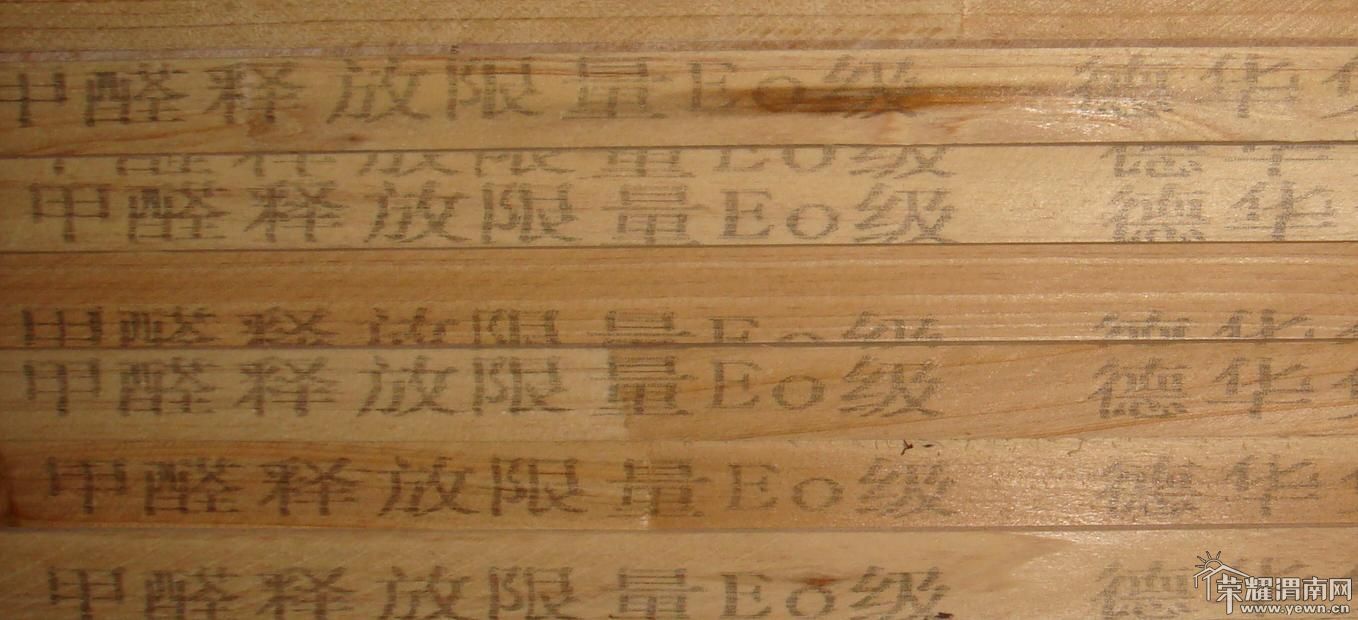 甲醛释放限量Eo级 德华
甲醛释放限量Eo级 德华
甲醛释放限量Eo级 德华
甲醛释放限量Eo级 德华
甲醛释放限量Eo级 德华
甲醛释放限量Eo级 德华
甲醛释放限量Eo级 德华
荣耀渭南网
www.yewn.cn